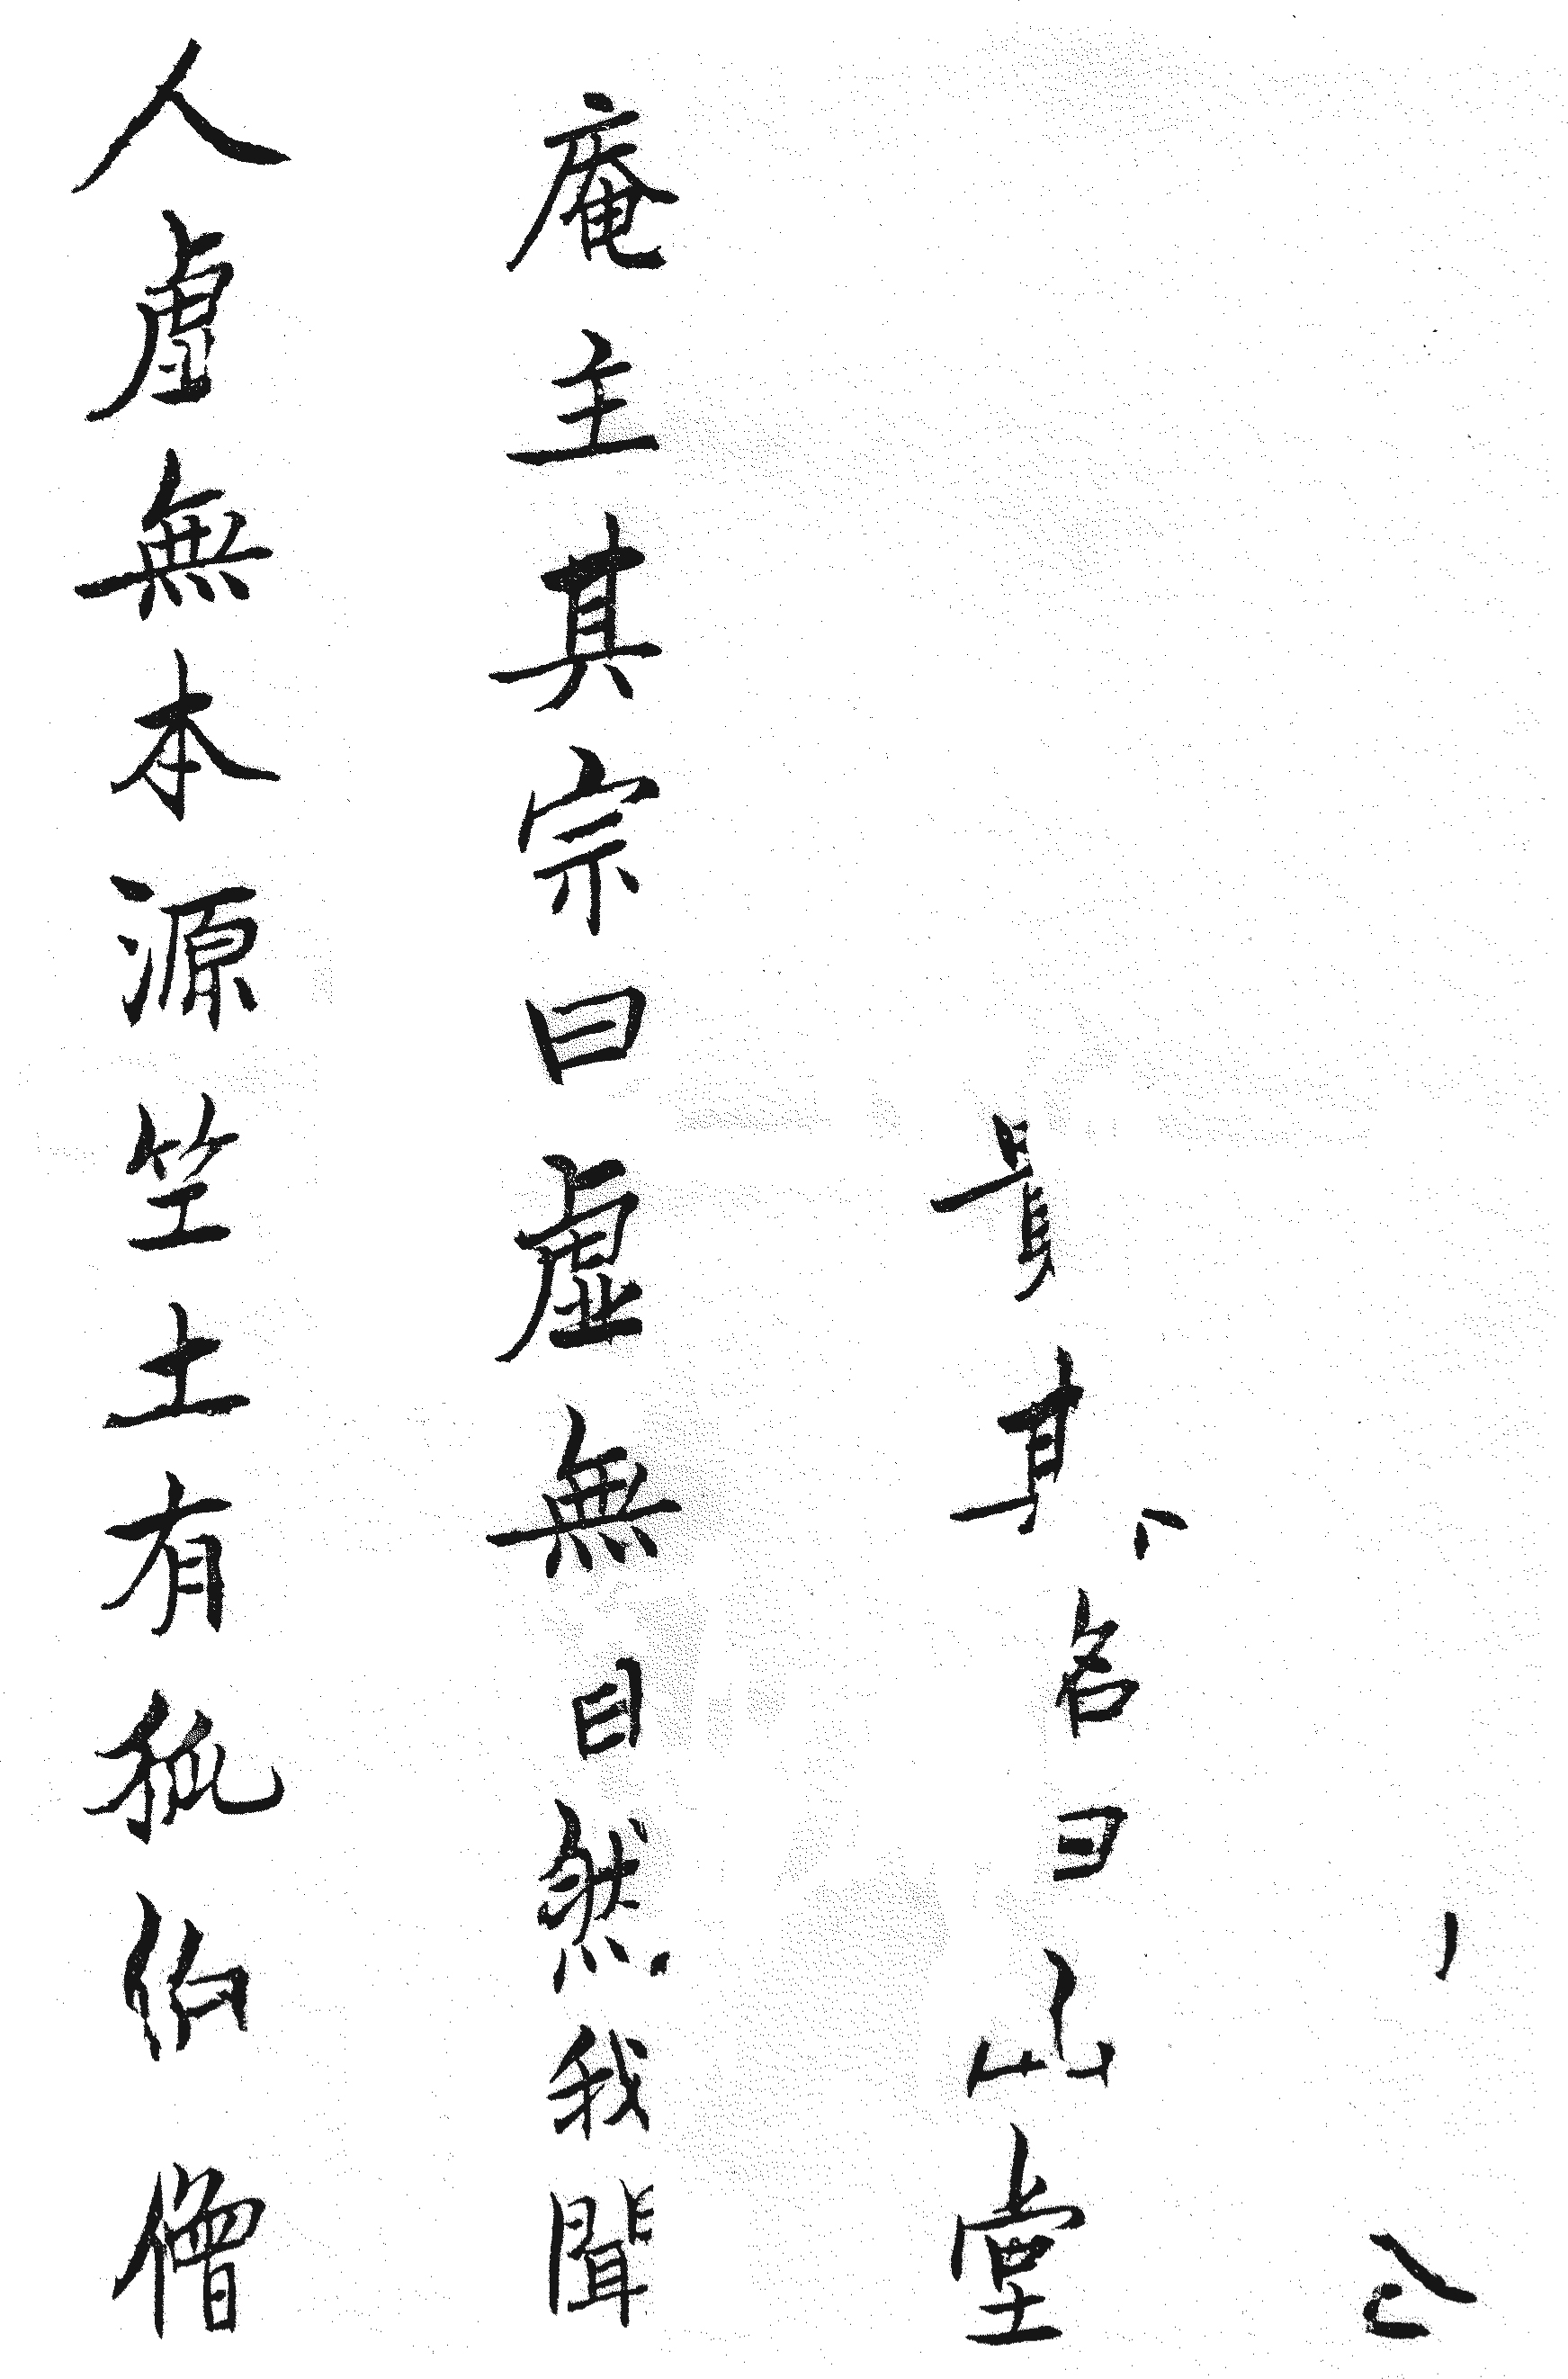 其名曰山堂
庵主其宗曰虛無自然我聞
人虛無本源竺土有狐伯僧